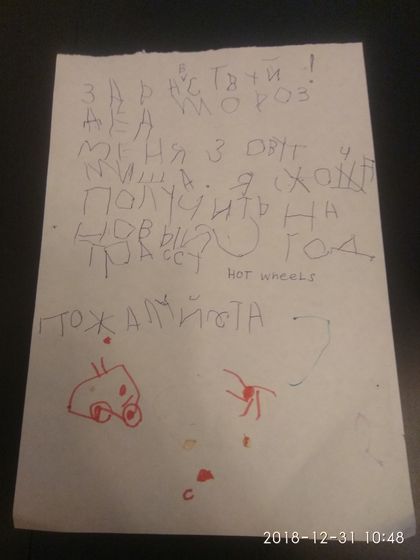 ЗДРАВСТВУЙ!
ДЕД МОРОЗ
МЕНЯ ЗОВУТ
МИША. Я ХОЧУ
ПОЛУЧИТЬ НА
НОВЫЙ ГОД
ТРАССУ
HOT WHEELS
ПОЖАЛУЙСТА
С
2018-12-31 10:48